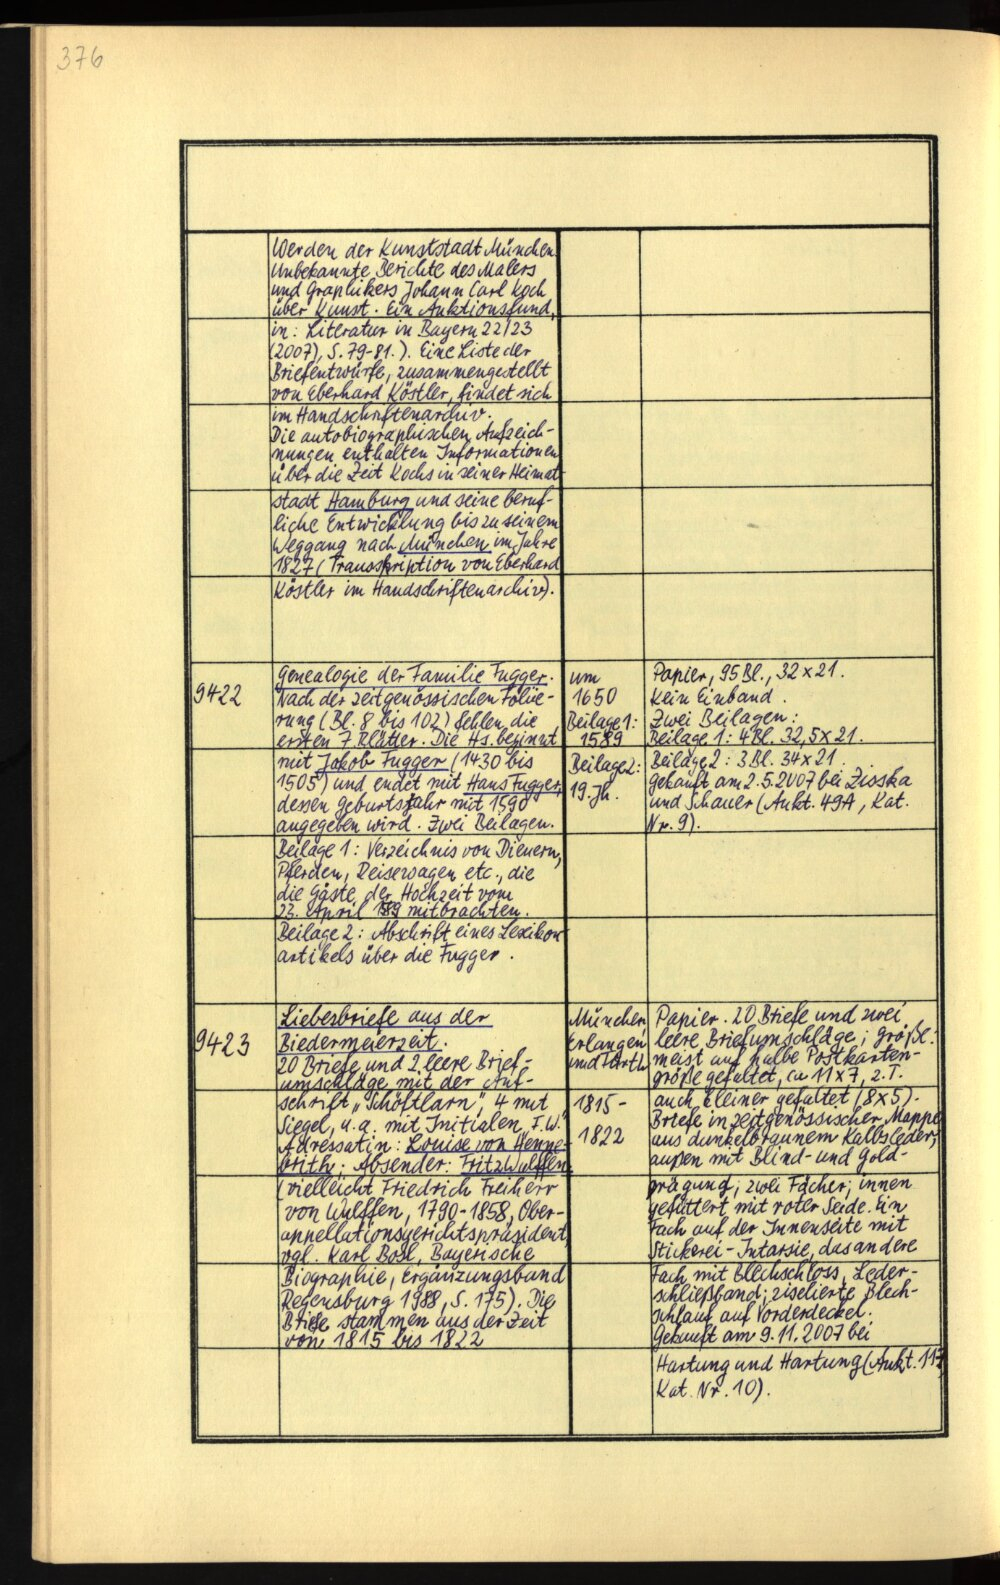 376
Werden der Kunststadt München.
Unbekannte Berichte des Malers
und Graphikers Johann Carl Koch
über Kunst. Ein Auktionsfund,
in: Literatur in Bayern 22/23
(2007), S. 79-81.). Eine Liste der
Briefentwürfe, zusammengestellt
von Eberhard Köstler, findet sich
im Handschriftenarchiv.
Die autobiographischen Aufzeich-
nungen enthalten Informationen
über die Zeit Kochs in seiner Heimat-
stadt Hamburg und seine beruf-
liche Entwicklung bis zu seinem
Weggang nach München im Jahre
1827 (Transkription von Eberhard
Köstler im Handschriftenarchiv).
9422
Genealogie der Familie Fugger.
Nach der zeitgenössischen Folie-
rung (Bl. 8 bis 102) fehlen die
ersten 7 Blätter. Die Hs. beginnt
mit Jakob Fugger (1430 bis
1505) und endet mit Hans Fugger,
dessen Geburtsjahr mit 1590
angegeben wird. Zwei Beilagen.
Beilage 1: Verzeichnis von Dienern,
Pferden, Reisewagen etc., die
die Gäste der Hochzeit vom
23. April 1589 mitbrachten.
Beilage 2: Abschrift eines Lexikon-
artikels über die Fugger.
um
1650
Beilage 1:
1589
Beilage 2:
19. Jh.
Papier, 95 Bl., 32 x 21.
Kein Einband.
Zwei Beilagen:
Beilage 1: 4 Bl. 32,5 x 21.
Beilage 2: 3 Bl. 34 x 21.
Gekauft am 2.5.2007 bei Zisska
und Schauer (Aukt. 49A, Kat.
Nr. 9).
9423
Liebesbriefe aus der
Biedermeierzeit.
20 Briefe und 2 leere Brief-
umschläge mit der Auf-
schrift „Schöftlarn", 4 mit
Siegel, u.a. mit Initialen „F.W."
Adressatin: Louise von Henne-
brith; Absender: Fritz Wulffen
(vielleicht Friedrich Freiherr
von Wulffen, 1790-1858, Ober-
appellationsgerichtspräsident,
vgl. Karl Bosl, Bayerische
Biographie, Ergänzungsband
Regensburg 1988, S. 175). Die
Briefe stammen aus der Zeit
von 1815 bis 1822
München
Erlangen
und Fürth
1815 -
1822
Papier. 20 Briefe und zwei
leere Briefumschläge; Größe:
meist auf halbe Postkarten-
größe gefaltet, ca 11 x 7, z.T.
auch kleiner gefaltet (8 x 5).
Briefe in zeitgenössischer Mappe
aus dunkelbraunem Kalbsleder,
außen mit Blind- und Gold-
prägung; zwei Fächer; innen
gefüttert mit roter Seide. Ein
Fach auf der Innenseite mit
Stickerei-Intarsie, das andere
Fach mit Blechschloss, Leder-
schließband; ziselierte Blech-
schlauf auf Vorderdeckel.
Gekauft am 9.11.2007 bei
Hartung und Hartung (Aukt. 117,
Kat. Nr. 10).